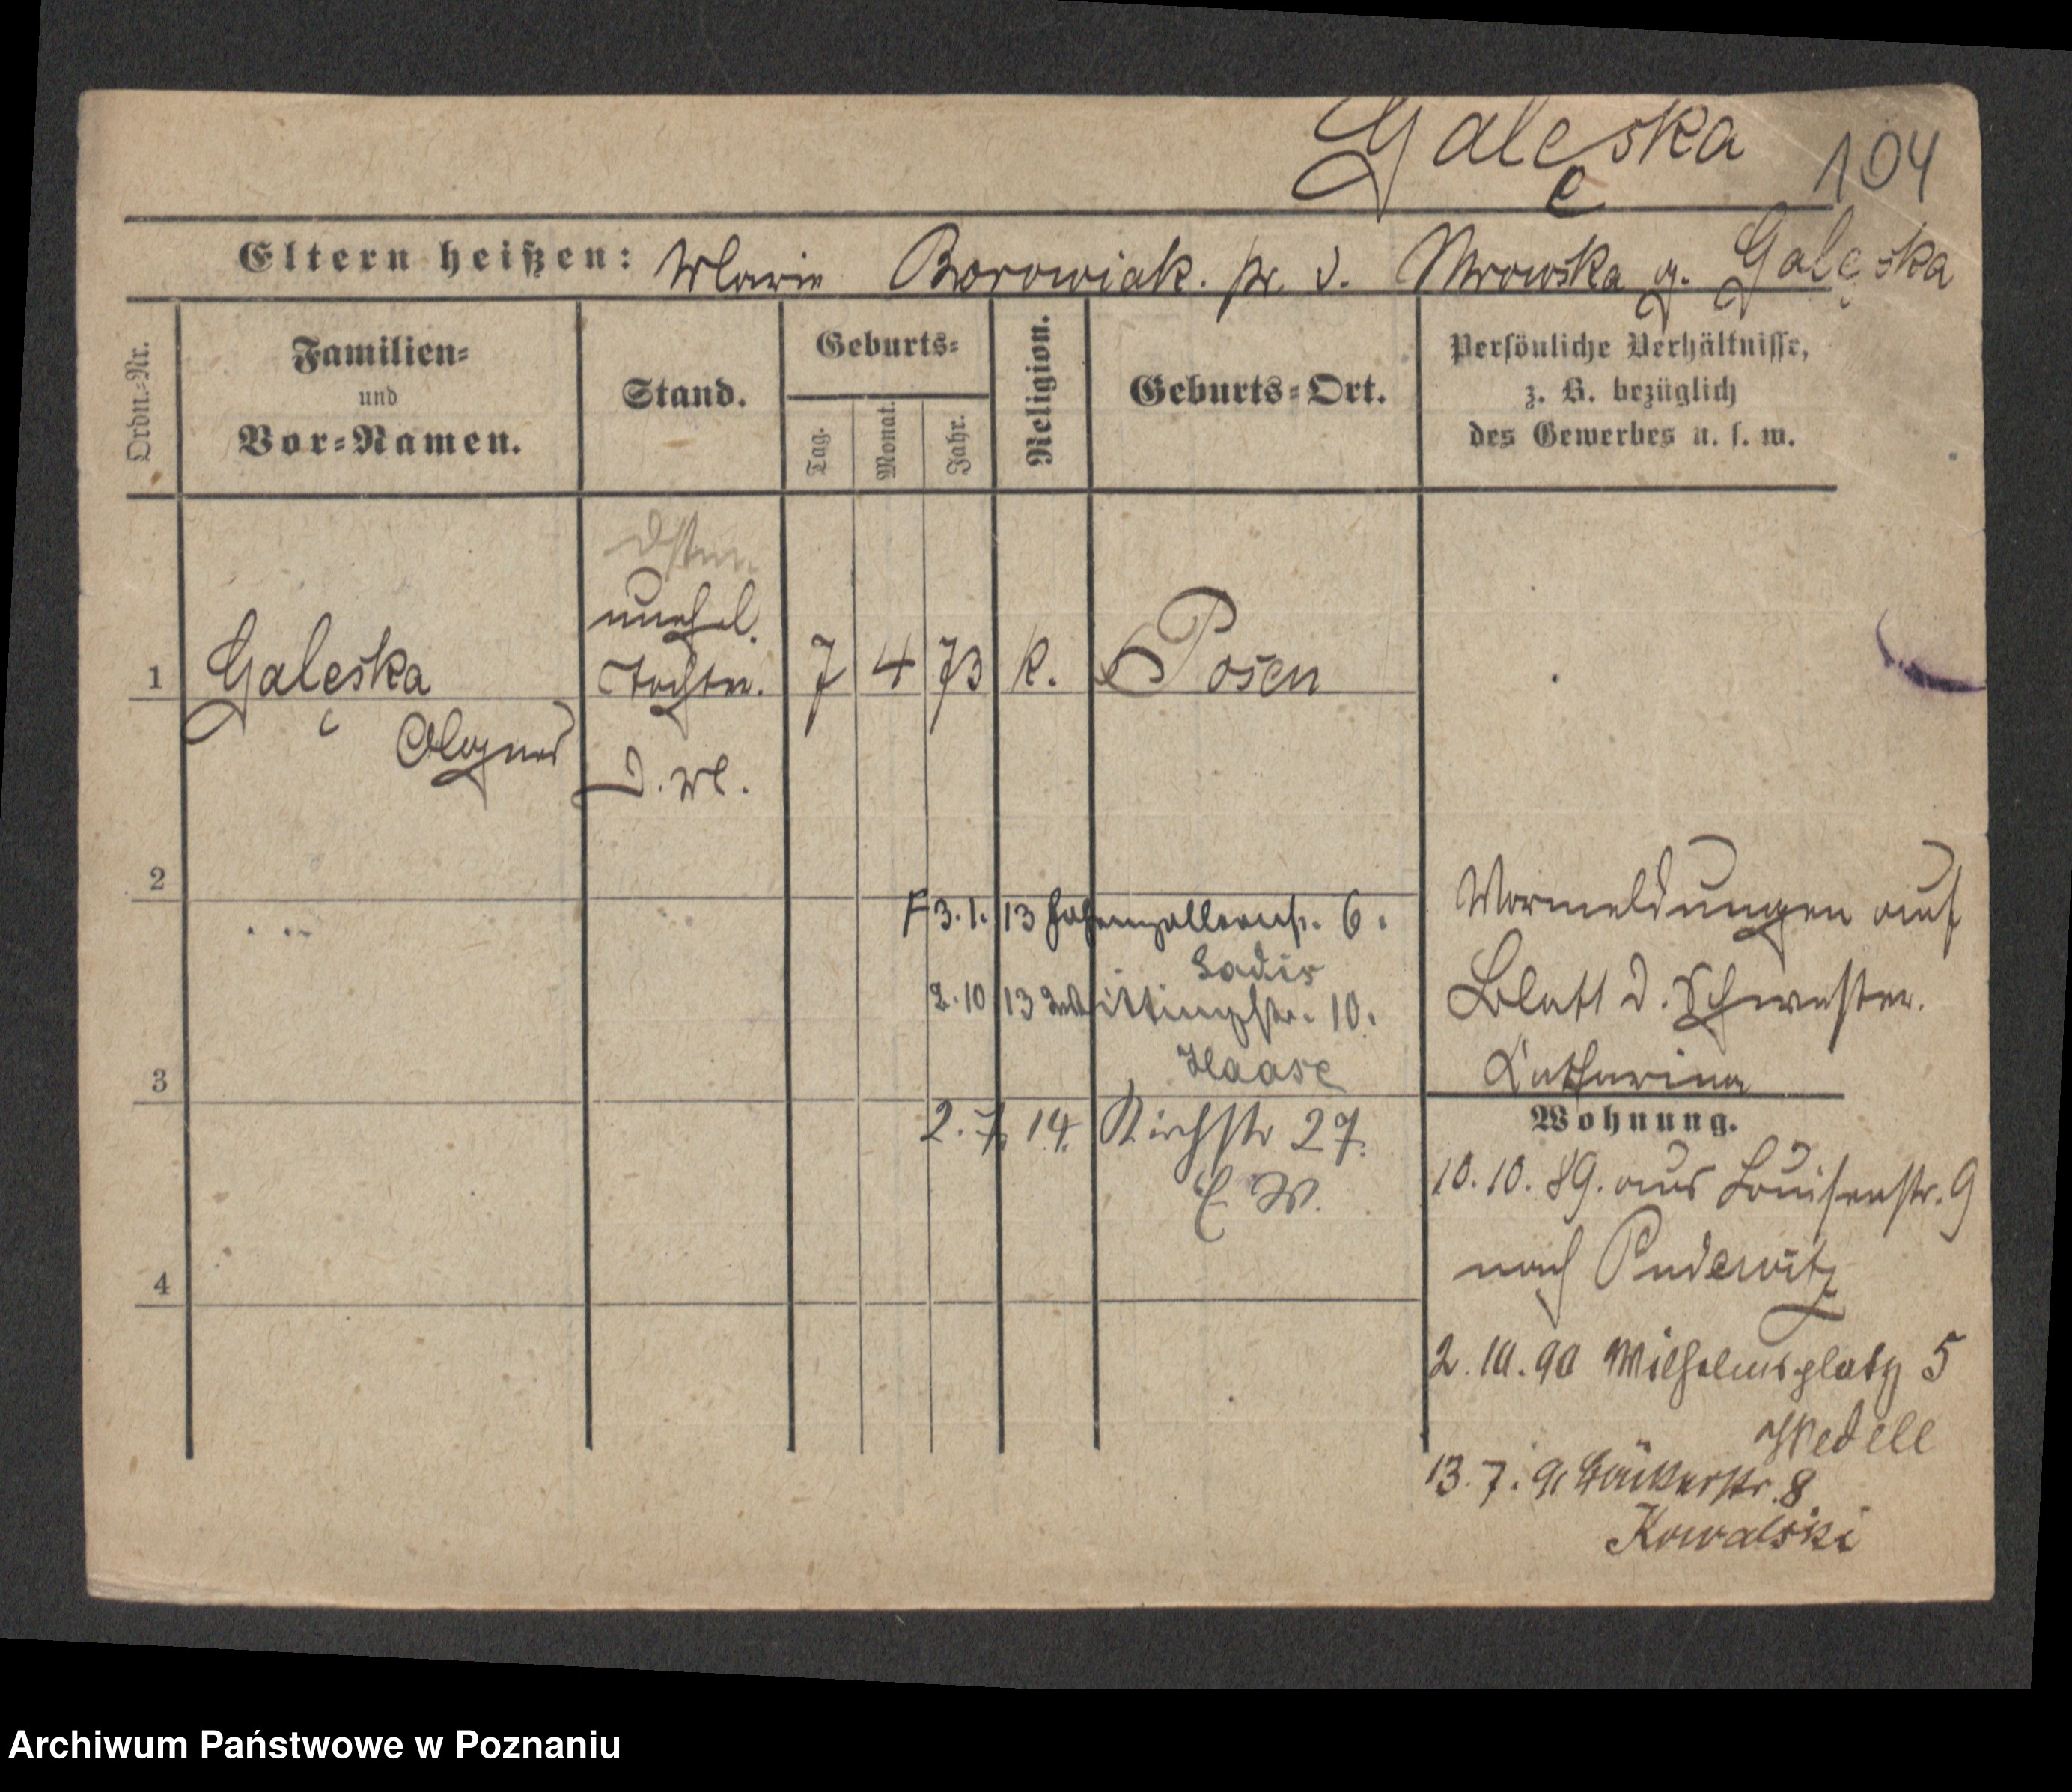 Galeska 104
e
Eltern heißen: Marie Borowiak. pr. v. Mrowska g. Galęska
Ordn.-Nr.
Familien-
und
Vor-Namen.
Stand.
Geburts-
Tag.
Monat.
Jahr.
Religion.
Geburts-Ort.
Persönliche Verhältnisse,
z. B. bezüglich
des Gewerbes u. s. w.
unehel.
1 Galeska Tochter. 7 4 73 k. Posen
e
Agnes
D. M.
2
3.1. 13 Hohenzollernstr. 6.
Sadis
2.10 13 ittingstr. 10.
Haase
3
2. 7. 14. Kirchstr 27.
E. W.
4
Vormeldungen auf
Blatt d. Schwester.
Katharina
Wohnung.
10.10.89. aus Louisenstr. 9
nach Pudewitz
2.10.90 Wilhelmsplatz 5
Wedell
13.7.91 Bäckerstr. 8
Kowalski
Archiwum Państwowe w Poznaniu